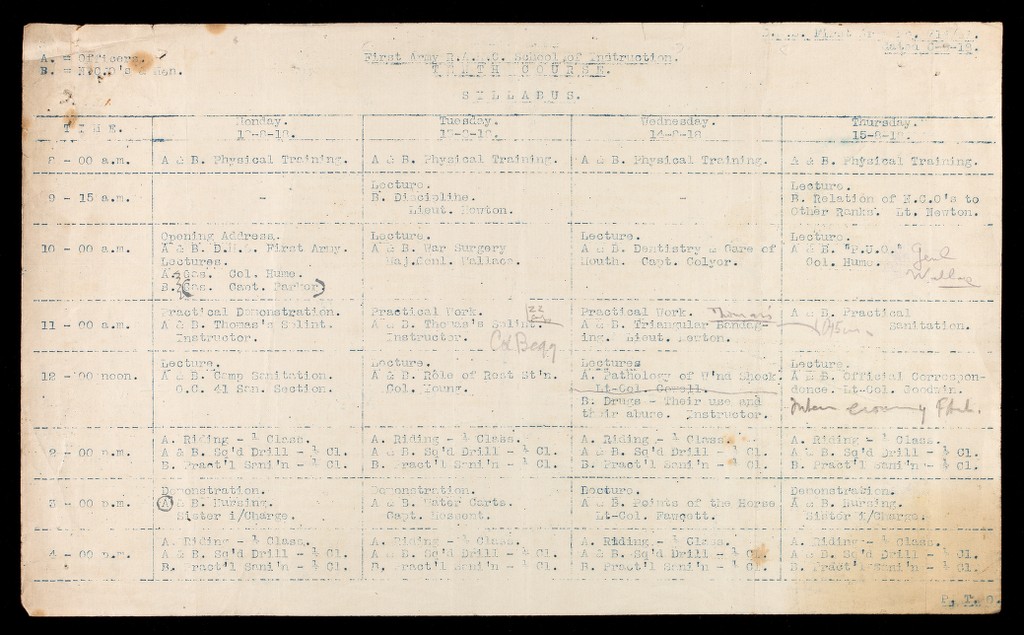 First Ar
dated 8-8-18.
A. = Officers.
B. = N.C.O's & Men.
First Army R.A.M.C. School of Instruction.
TENTH COURSE.
SYLLABUS.
TIME. Monday. Tuesday. Wednesday. Thursday.
12-8-18. 13-8-18. 14-8-18 15-8-18.
8 - 00 a.m. A & B. Physical Training. A & B. Physical Training. A & B. Physical Training. A & B. Physical Training.
Lecture. Lecture.
9 - 15 a.m. B. Discipline. B. Relation of N.C.O's to
Lieut. Newton. Other Ranks. Lt. Newton.
Opening Address. Lecture. Lecture. Lecture.
10 - 00 a.m. A & B. D.M.S. First Army. A & B. War Surgery A & B. Dentistry & Care of A & B. "P.U.O."
Lectures. Maj.Genl. Wallace. Mouth. Capt. Colyer. Col. Hume. Genl
A. Gas. Col. Hume. Wallace
B. (Gas. Capt. Parker)
Practical Demonstration. Practical Work. Practical Work. Thomas's A & B. Practical
11 - 00 a.m. A & B. Thomas's Splint. A & B. Thomas's Splint. A & B. Triangular Bandag- Sanitation.
Instructor. Instructor. ing. Lieut. Newton.
Lecture. Lecture. Lectures Lecture.
12 - 00 noon. A & B. Camp Sanitation. A & B. Rôle of Rest St'n. A. Pathology of W'nd Shock A & B. Official Correspon-
O.C. 41 San. Section. Col. Young. Lt-Col. Cowell. dence. Lt-Col. Goodwin.
B. Drugs - Their use and
their abuse. Instructor.
A. Riding - ½ Class. A. Riding - ½ Class. A. Riding - ½ Class. A. Riding - ½ Class.
2 - 00 p.m. A & B. Sq'd Drill - ½ Cl. A & B. Sq'd Drill - ½ Cl. A & B. Sq'd Drill - ½ Cl. A & B. Sq'd Drill - ½ Cl.
B. Pract'l Sani'n - ½ Cl. B. Pract'l Sani'n - ½ Cl. B. Pract'l Sani'n - ½ Cl. B. Pract'l Sani'n - ½ Cl.
Demonstration. Demonstration. Lecture. Demonstration.
3 - 00 p.m. A & B. Nursing. A & B. Water Carts. A & B. Points of the Horse A & B. Nursing.
Sister i/Charge. Capt. Lt-Col. Fawcett. Sister i/Charge.
A. Riding - ½ Class. A. Riding - ½ Class. A. Riding - ½ Class. A. Riding - ½ Class.
4 - 00 p.m. A & B. Sq'd Drill - ½ Cl. A & B. Sq'd Drill - ½ Cl. A & B. Sq'd Drill - ½ Cl. A & B. Sq'd Drill - ½ Cl.
B. Pract'l Sani'n - ½ Cl. B. Pract'l Sani'n - ½ Cl. B. Pract'l Sani'n - ½ Cl. B. Pract'l Sani'n - ½ Cl.
P. T. O.